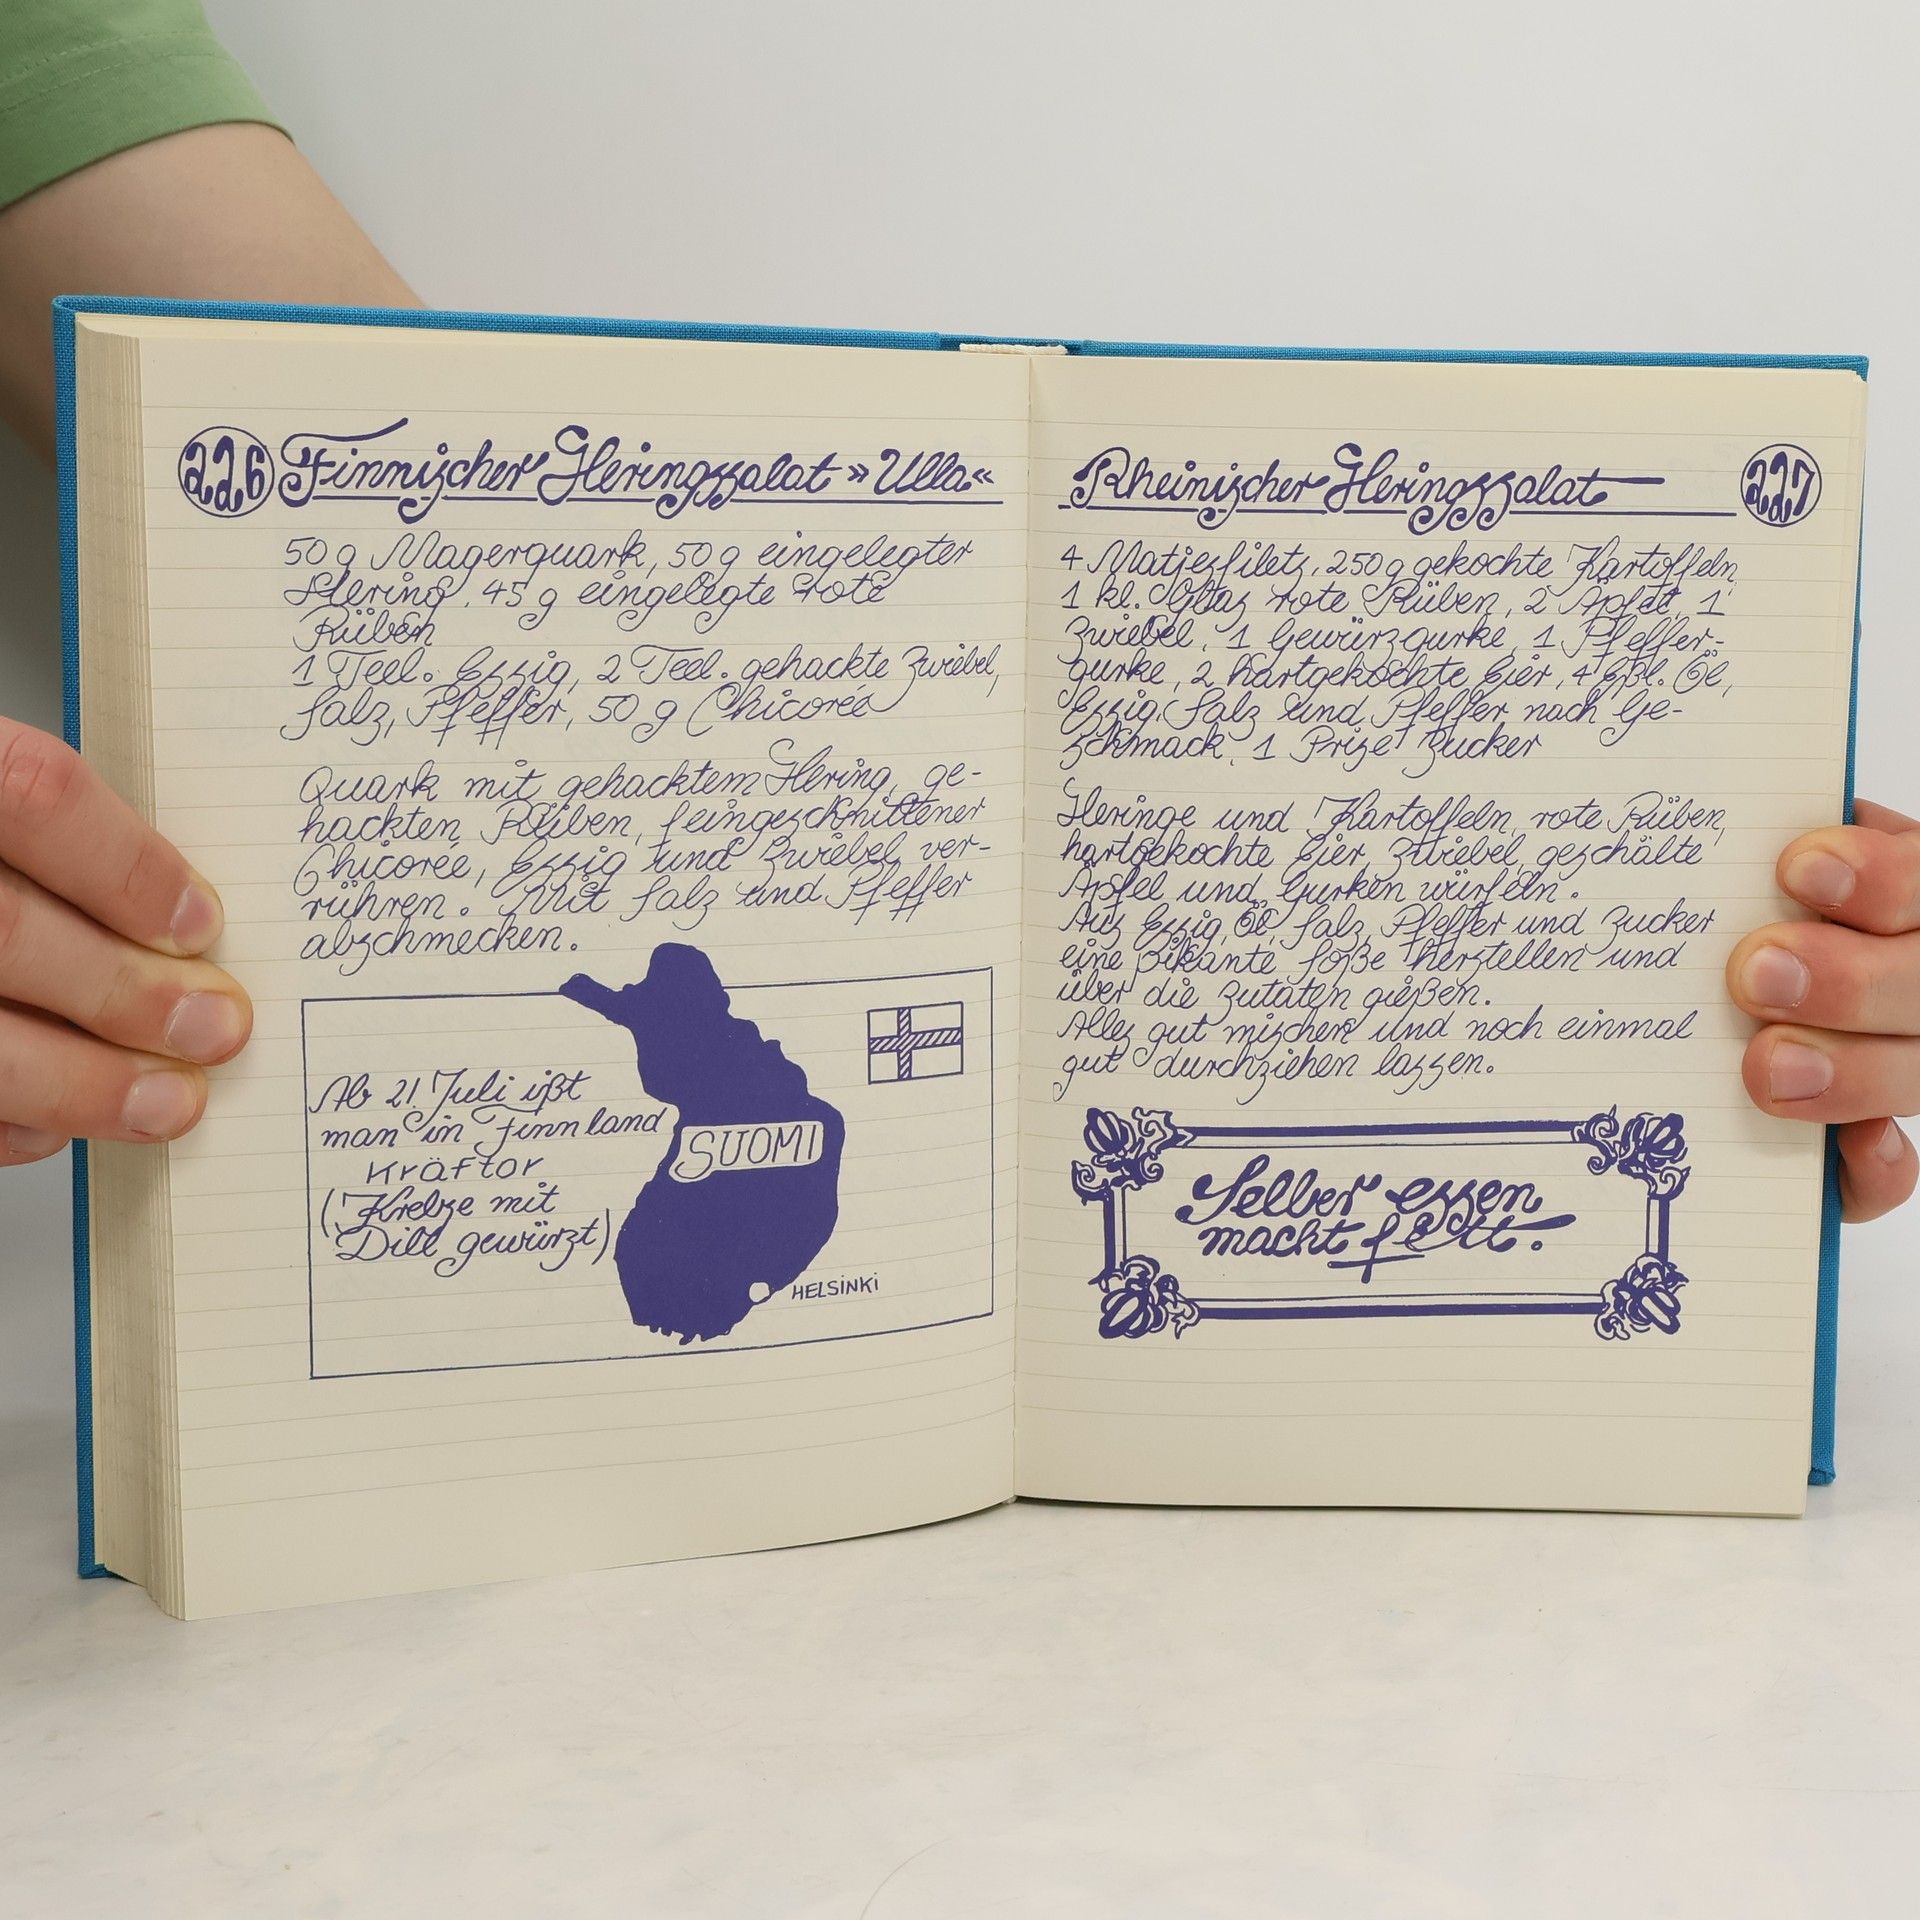 226 Finnischer Heringssalat »Ulla«
50 g Magerquark, 50 g eingelegter
Hering, 45 g eingelegte rote
Rüben
1 Teel. Essig, 2 Teel. gehackte Zwiebel,
Salz, Pfeffer, 50 g Chicorée
Quark mit gehacktem Hering, ge-
hackten Rüben, feingeschnittener
Chicorée, Essig und Zwiebel ver-
rühren. Mit Salz und Pfeffer
abschmecken.
Ab 21. Juli ißt
man in Finnland
Kräftor
(Krebse mit
Dill gewürzt)
SUOMI
HELSINKI
Rheinischer Heringssalat 227
4 Matjesfilets, 250 g gekochte Kartoffeln,
1 kl. Glas rote Rüben, 2 Äpfel, 1
Zwiebel, 1 Gewürzgurke, 1 Pfeffer-
gurke, 2 hartgekochte Eier, 4 Eßl. Öl,
Essig, Salz und Pfeffer nach Ge-
schmack, 1 Prise Zucker
Heringe und Kartoffeln, rote Rüben,
hartgekochte Eier, Zwiebel, geschälte
Äpfel und Gurken würfeln.
Aus Essig, Öl, Salz, Pfeffer und Zucker
eine pikante Soße herstellen und
über die Zutaten gießen.
Alles gut mischen und noch einmal
gut durchziehen lassen.
Selber essen
macht fett.